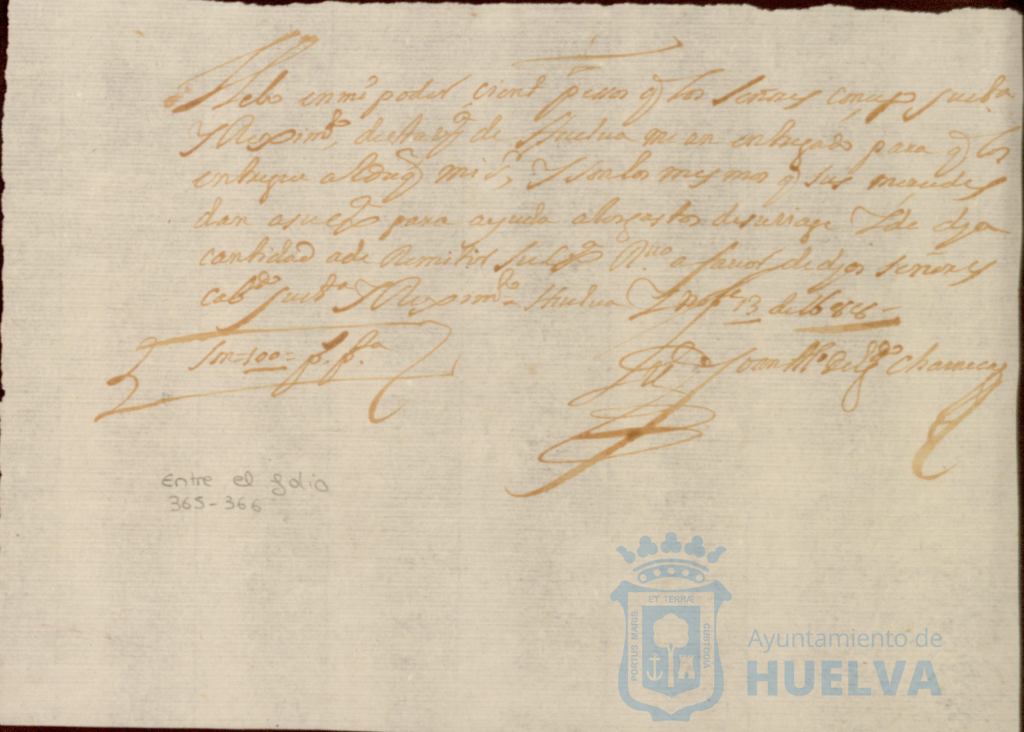 enmi poder cient pesos q los Señores Concejo Justa
y Reximto, desta vª de Huelva me an entregado para q lo
entregue al duq mi Sr, y son los mesmos q sus mercedes
dan a su exª para ayuda a los gastos de su viage y de dha
cantidad a de Remitir su exª Rvo a favor de dhos Señores
cabdo Justª y Reximto Huelva y Nove 13 de 1688
Son=100=p. pta
Juan
Entre el folio
365-366
ET TERRÆ
PORTUS MARIS
CUSTODIA
Ayuntamiento de
HUELVA